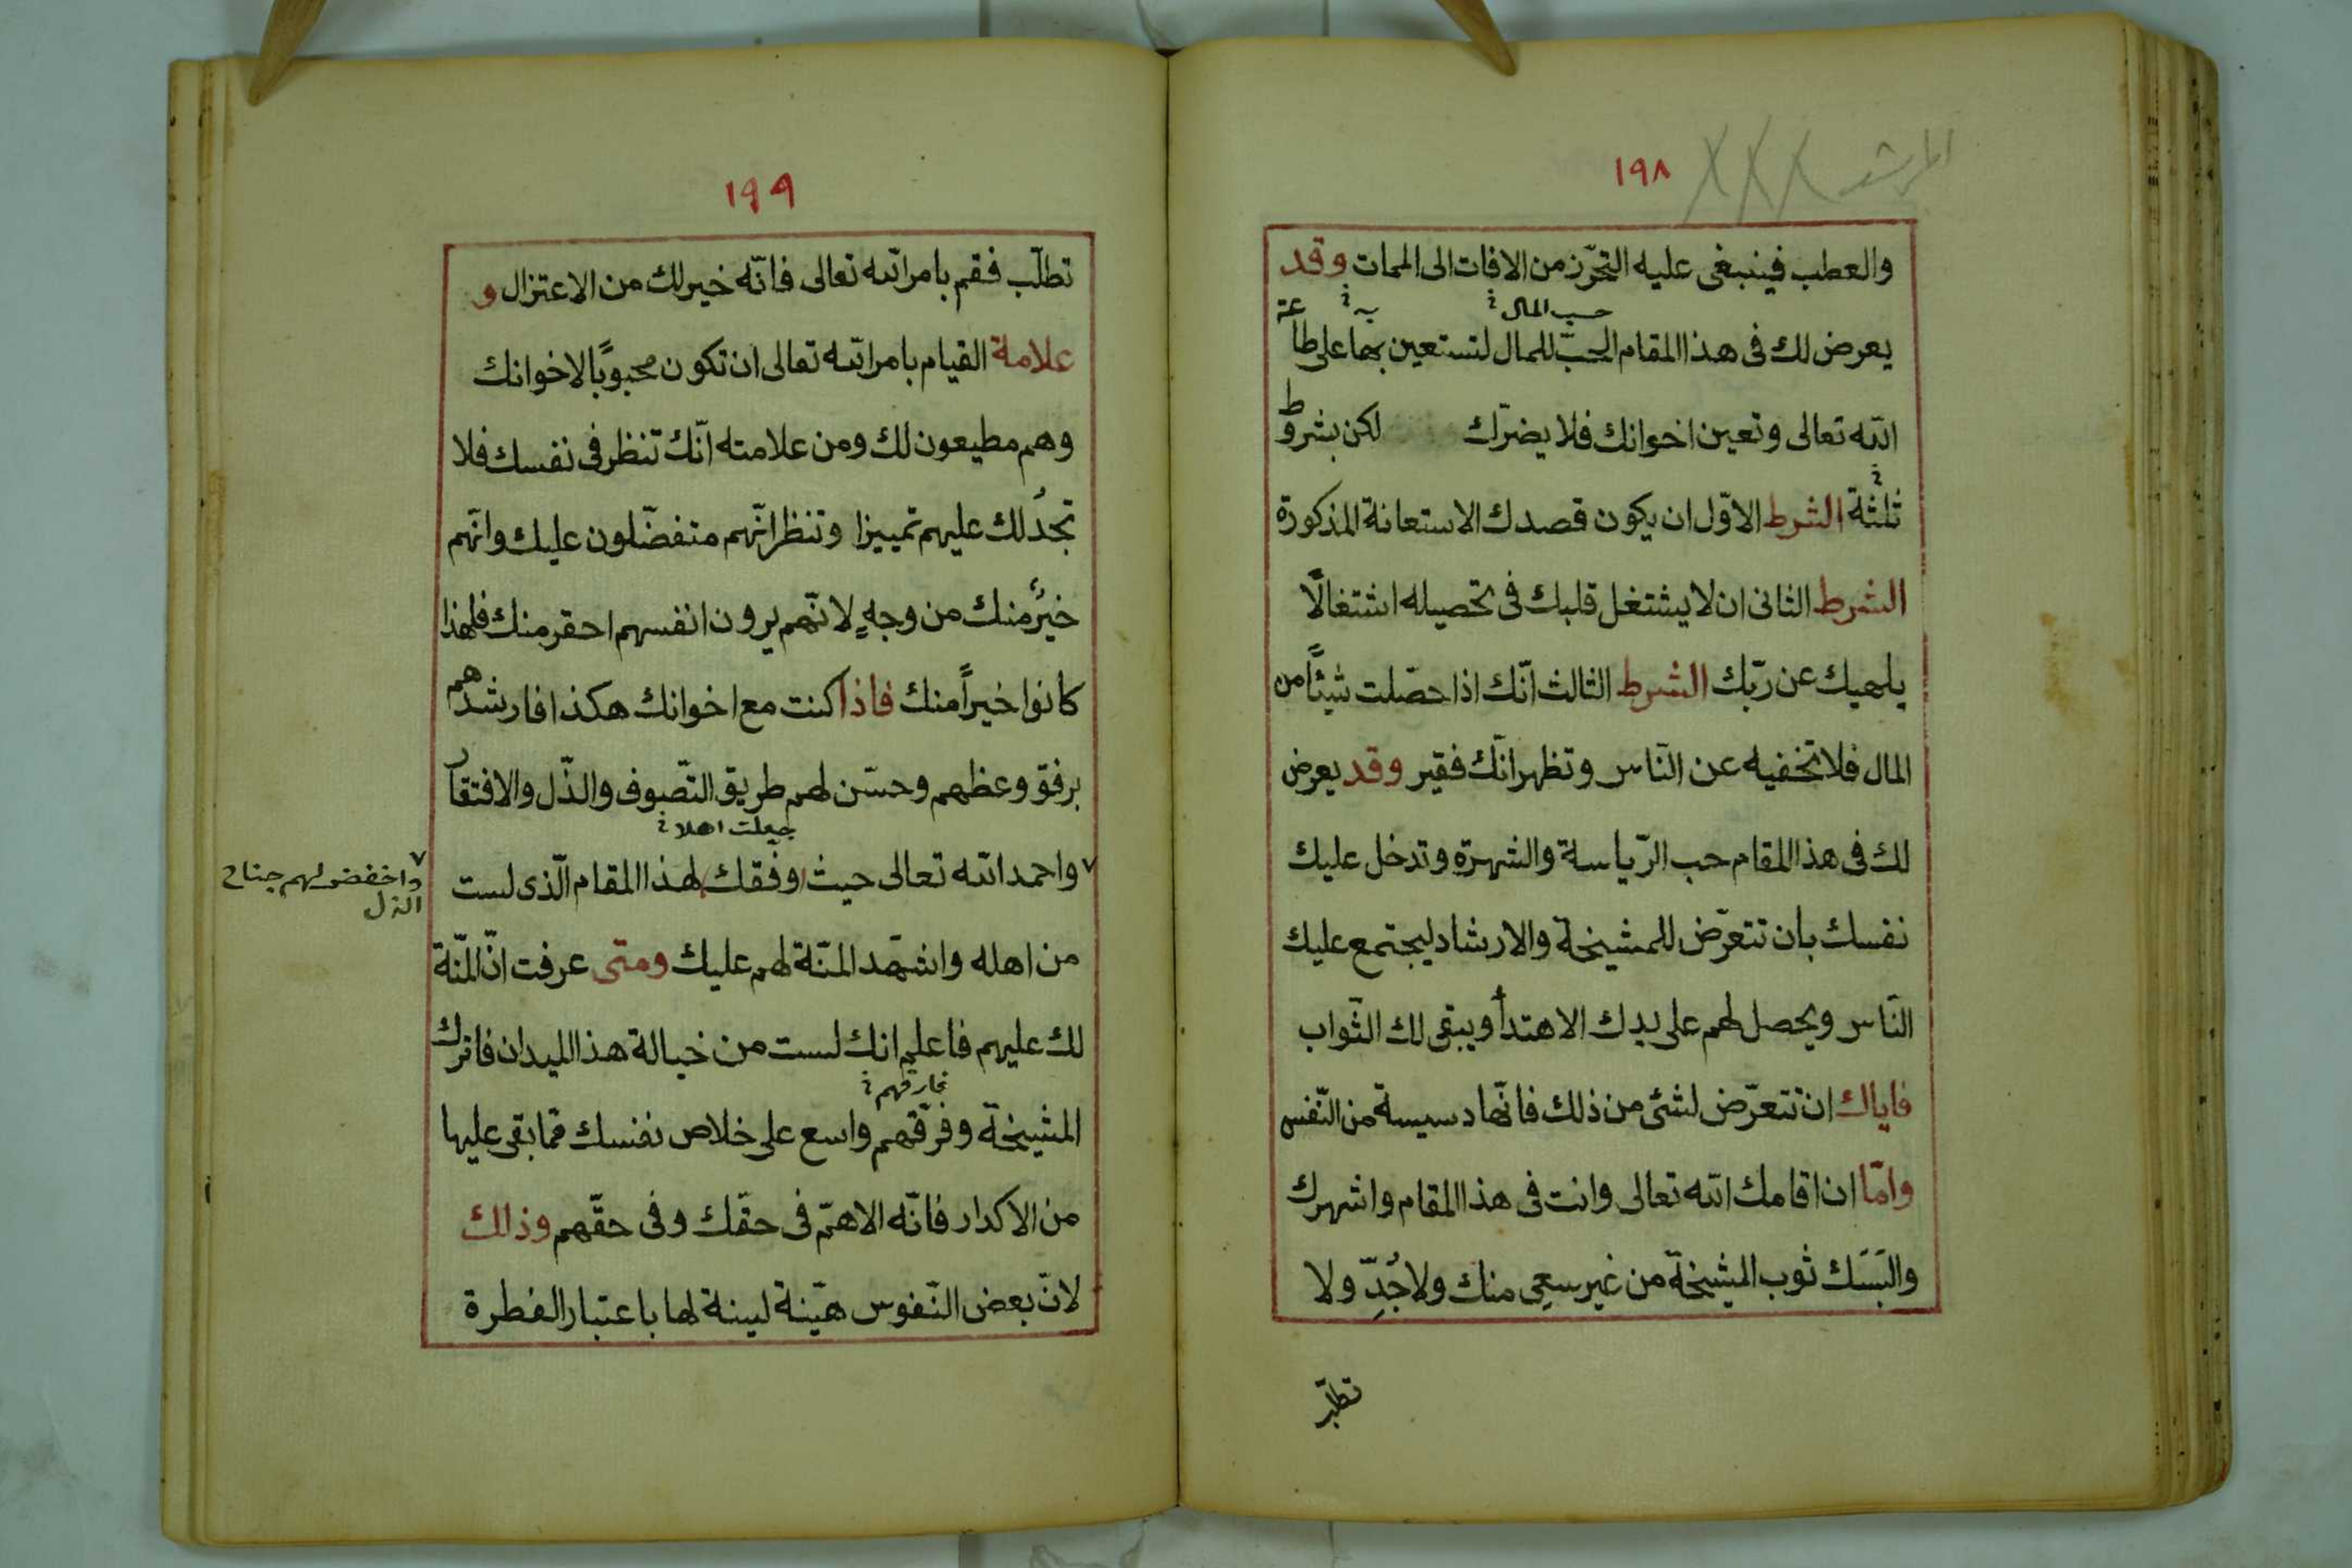 المرشد
١٩٨
والعطب فينبغى عليه التحرّز من الافات الى الممات وقد
حب المال ؟ به ؟
يعرض لك فى هذا المقام الحبّ للمال لتستعين بها على طاعة
الله تعالى وتعين اخوانك فلا يضرّك لكن بشروط
ثلثة الشرط الاوّل ان يكون قصدك الاستعانة المذكورة
الشرط الثانى ان لا يشتغل قلبك فى تحصيله اشتغالًا
يلهيك عن ربّك الشرط الثالث انّك اذا حصّلت شيئًا من
المال فلا تخفيه عن النّاس وتظهر انّك فقير وقد يعرض
لك فى هذا المقام حب الرّياسة والشهرة وتدخل عليك
نفسك بان تتعرّض للمشيخة والارشاد ليجتمع عليك
النّاس ويحصل لهم على يدك الاهتدأ ويبقى لك الثّواب
فاياك ان تتعرّض لشئ من ذلك فانّها دسيسة من النّفس
وامّا ان اقامك الله تعالى وانت فى هذا المقام واشهرك
والبَسَك ثوب المشيخة من غير سعى منك ولا جُدِّ ولا
١٩٩
تطلّب فقم بامر الله تعالى فانّه خير لك من الاعتزال و
علامة القيام بامر الله تعالى ان تكون محبوبًا لاخوانك
وهم مطيعون لك ومن علامته انّك تنظر فى نفسك فلا
تجدُ لك عليهم تمييزا وتنظر انّهم متفضّلون عليك وانّهم
خيرٌ منك من وجهٍ لانّهم يرون انفسهم احقر منك فلهذا
كانوا خيراً منك فاذا كنت مع اخوانك هكذا فارشدهم
برفق وعظهم وحسّن لهم طريق التّصوف والذّل والافتقار
جعلت اهلا ؟
واحمد الله تعالى حيث وفّقك لهذا المقام الّذى لست
واخفض لهم جناح
الذل
من اهله واشهد المنّة لهم عليك ومتى عرفت انّ المنّة
لك عليهم فاعلم انك لست من خيالة هذا الميدان فاترك
فارقهم ؟
المشيخة وفرّقهم واسع على خلاص نفسك ممّا بقى عليها
من الاكدار فانّه الاهمّ فى حقّك وفى حقّهم وذلك
لانّ بعض النّفوس هيّنة لينة لها باعتبار الفطرة